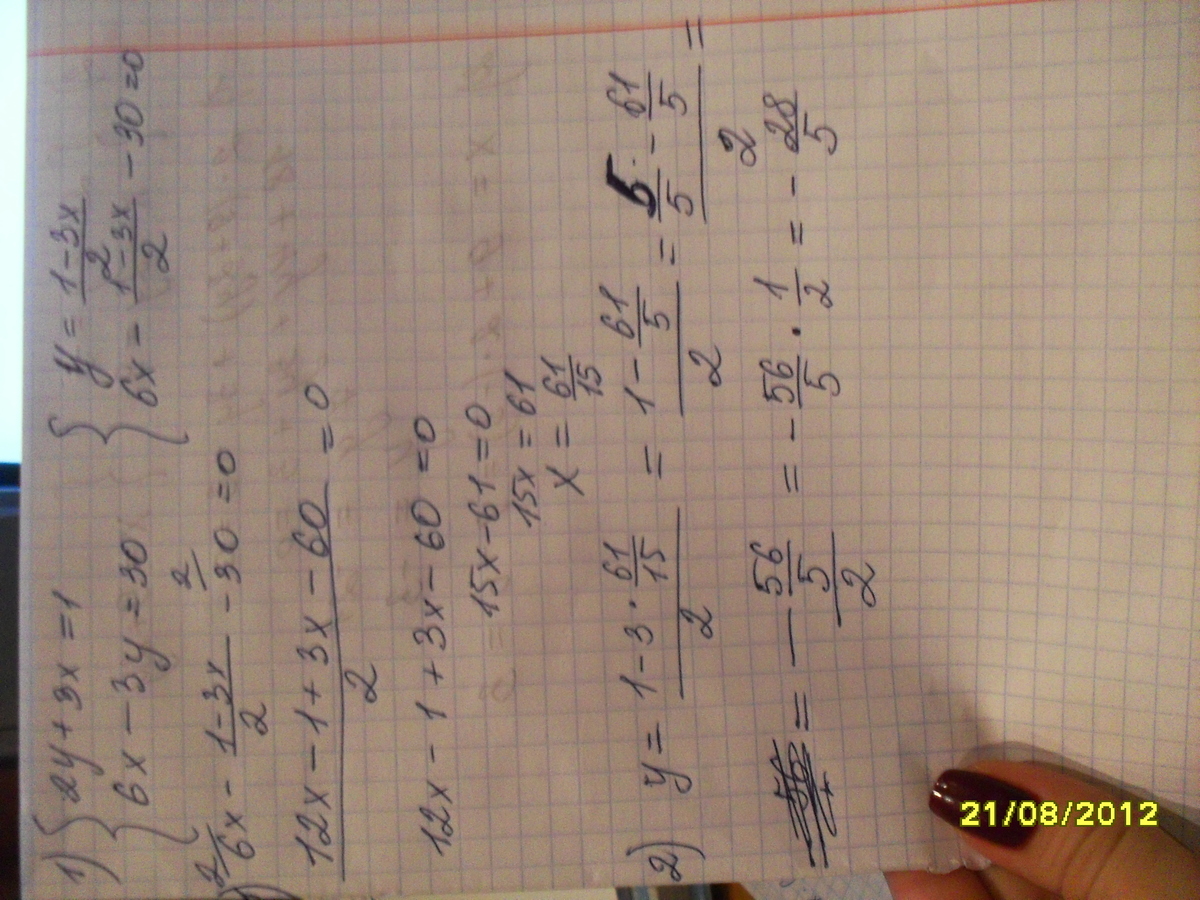 1) { 2y + 3x = 1
6x - 3y = 30
{ y = (1 - 3x)/2
6x - (1 - 3x)/2 - 30 = 0
2/ 6x - (1 - 3x)/2 - 2/ 30 = 0
(12x - 1 + 3x - 60)/2 = 0
12x - 1 + 3x - 60 = 0
15x - 61 = 0
15x = 61
x = 61/15
2) y = (1 - 3 · 61/15)/2 = (1 - 61/5)/2 = (5/5 - 61/5)/2 =
= - (56/5)/2 = - 56/5 · 1/2 = - 28/5
21/08/2012